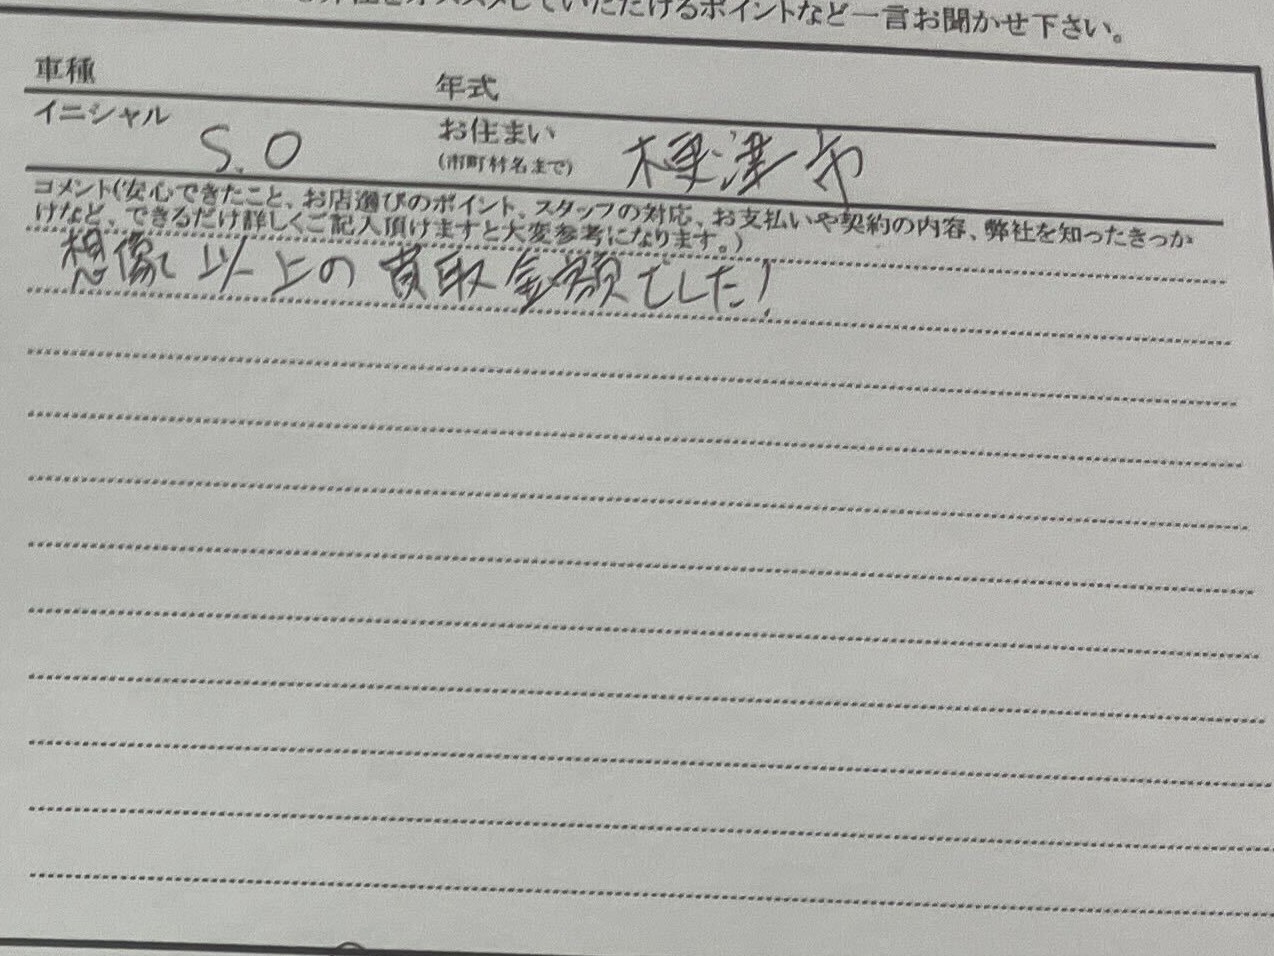 をオススメしていただけるポイントなど一言お聞かせ下さい。
車種 年式
イニシャル S.O お住まい(市町村名まで) 摂津市
コメント(安心できたこと、お店選びのポイント、スタッフの対応、お支払いや契約の内容、弊社を知ったきっか
けなど、できるだけ詳しくご記入頂けますと大変参考になります。)
想像以上の買取金額でした!